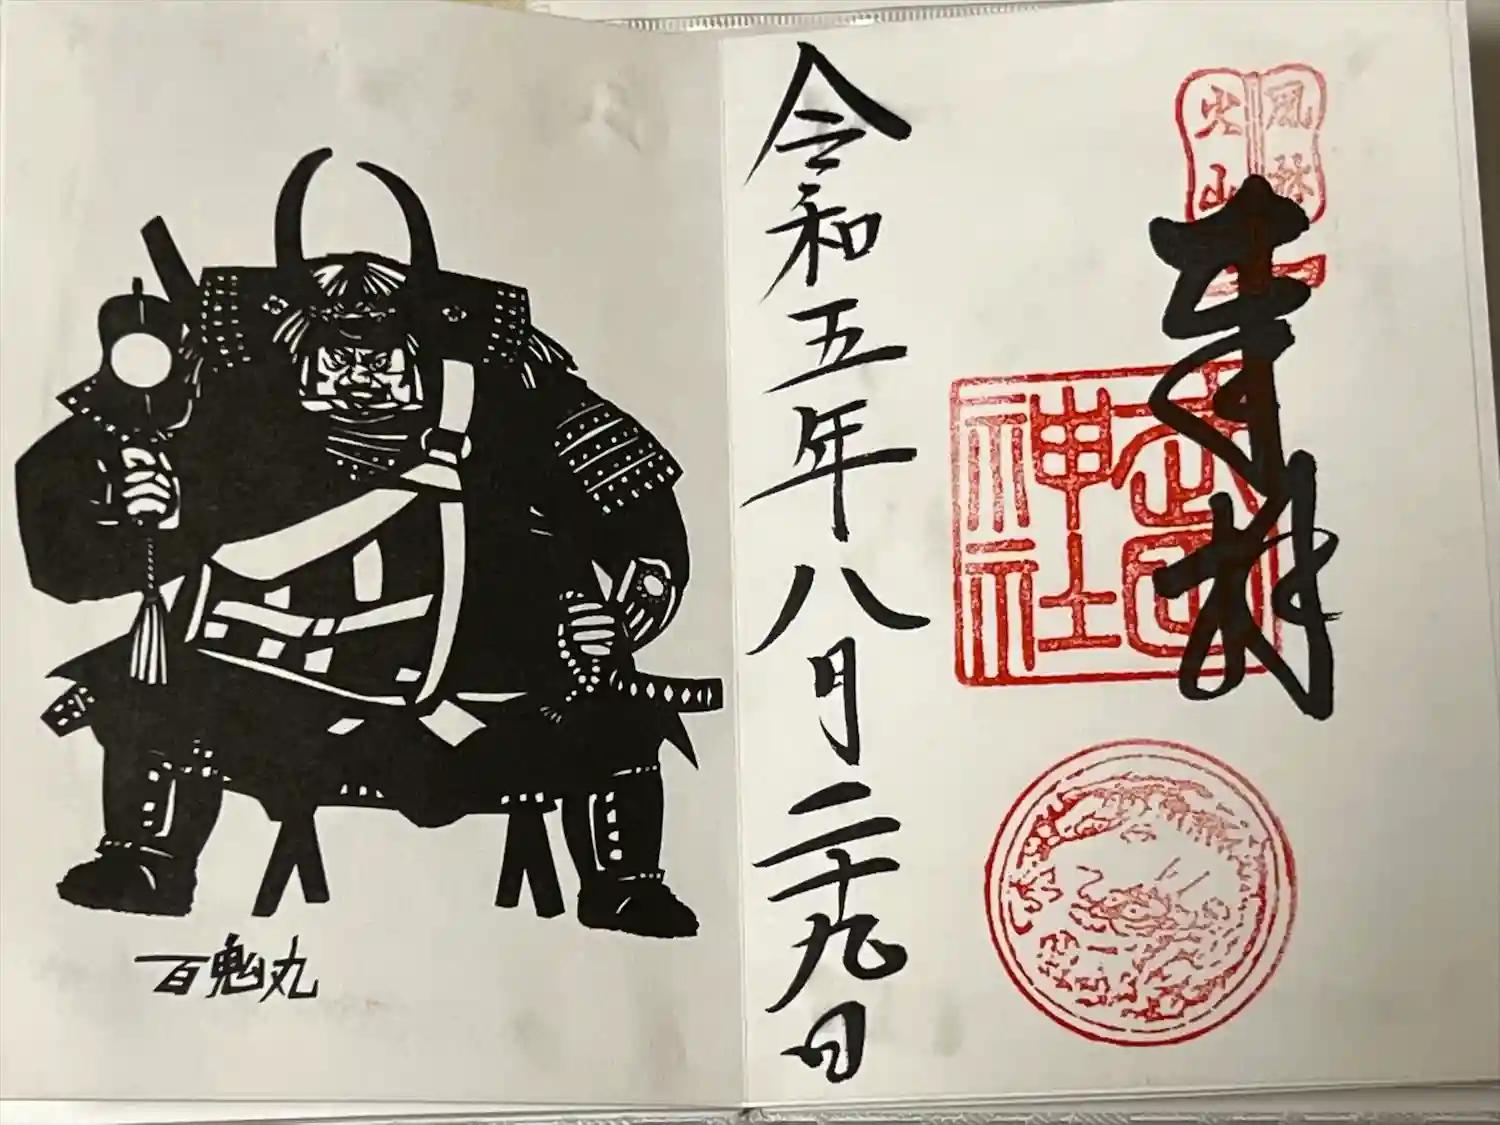 風林
火山
奉拝
武田
神社
令和五年八月二十九日
百鬼丸